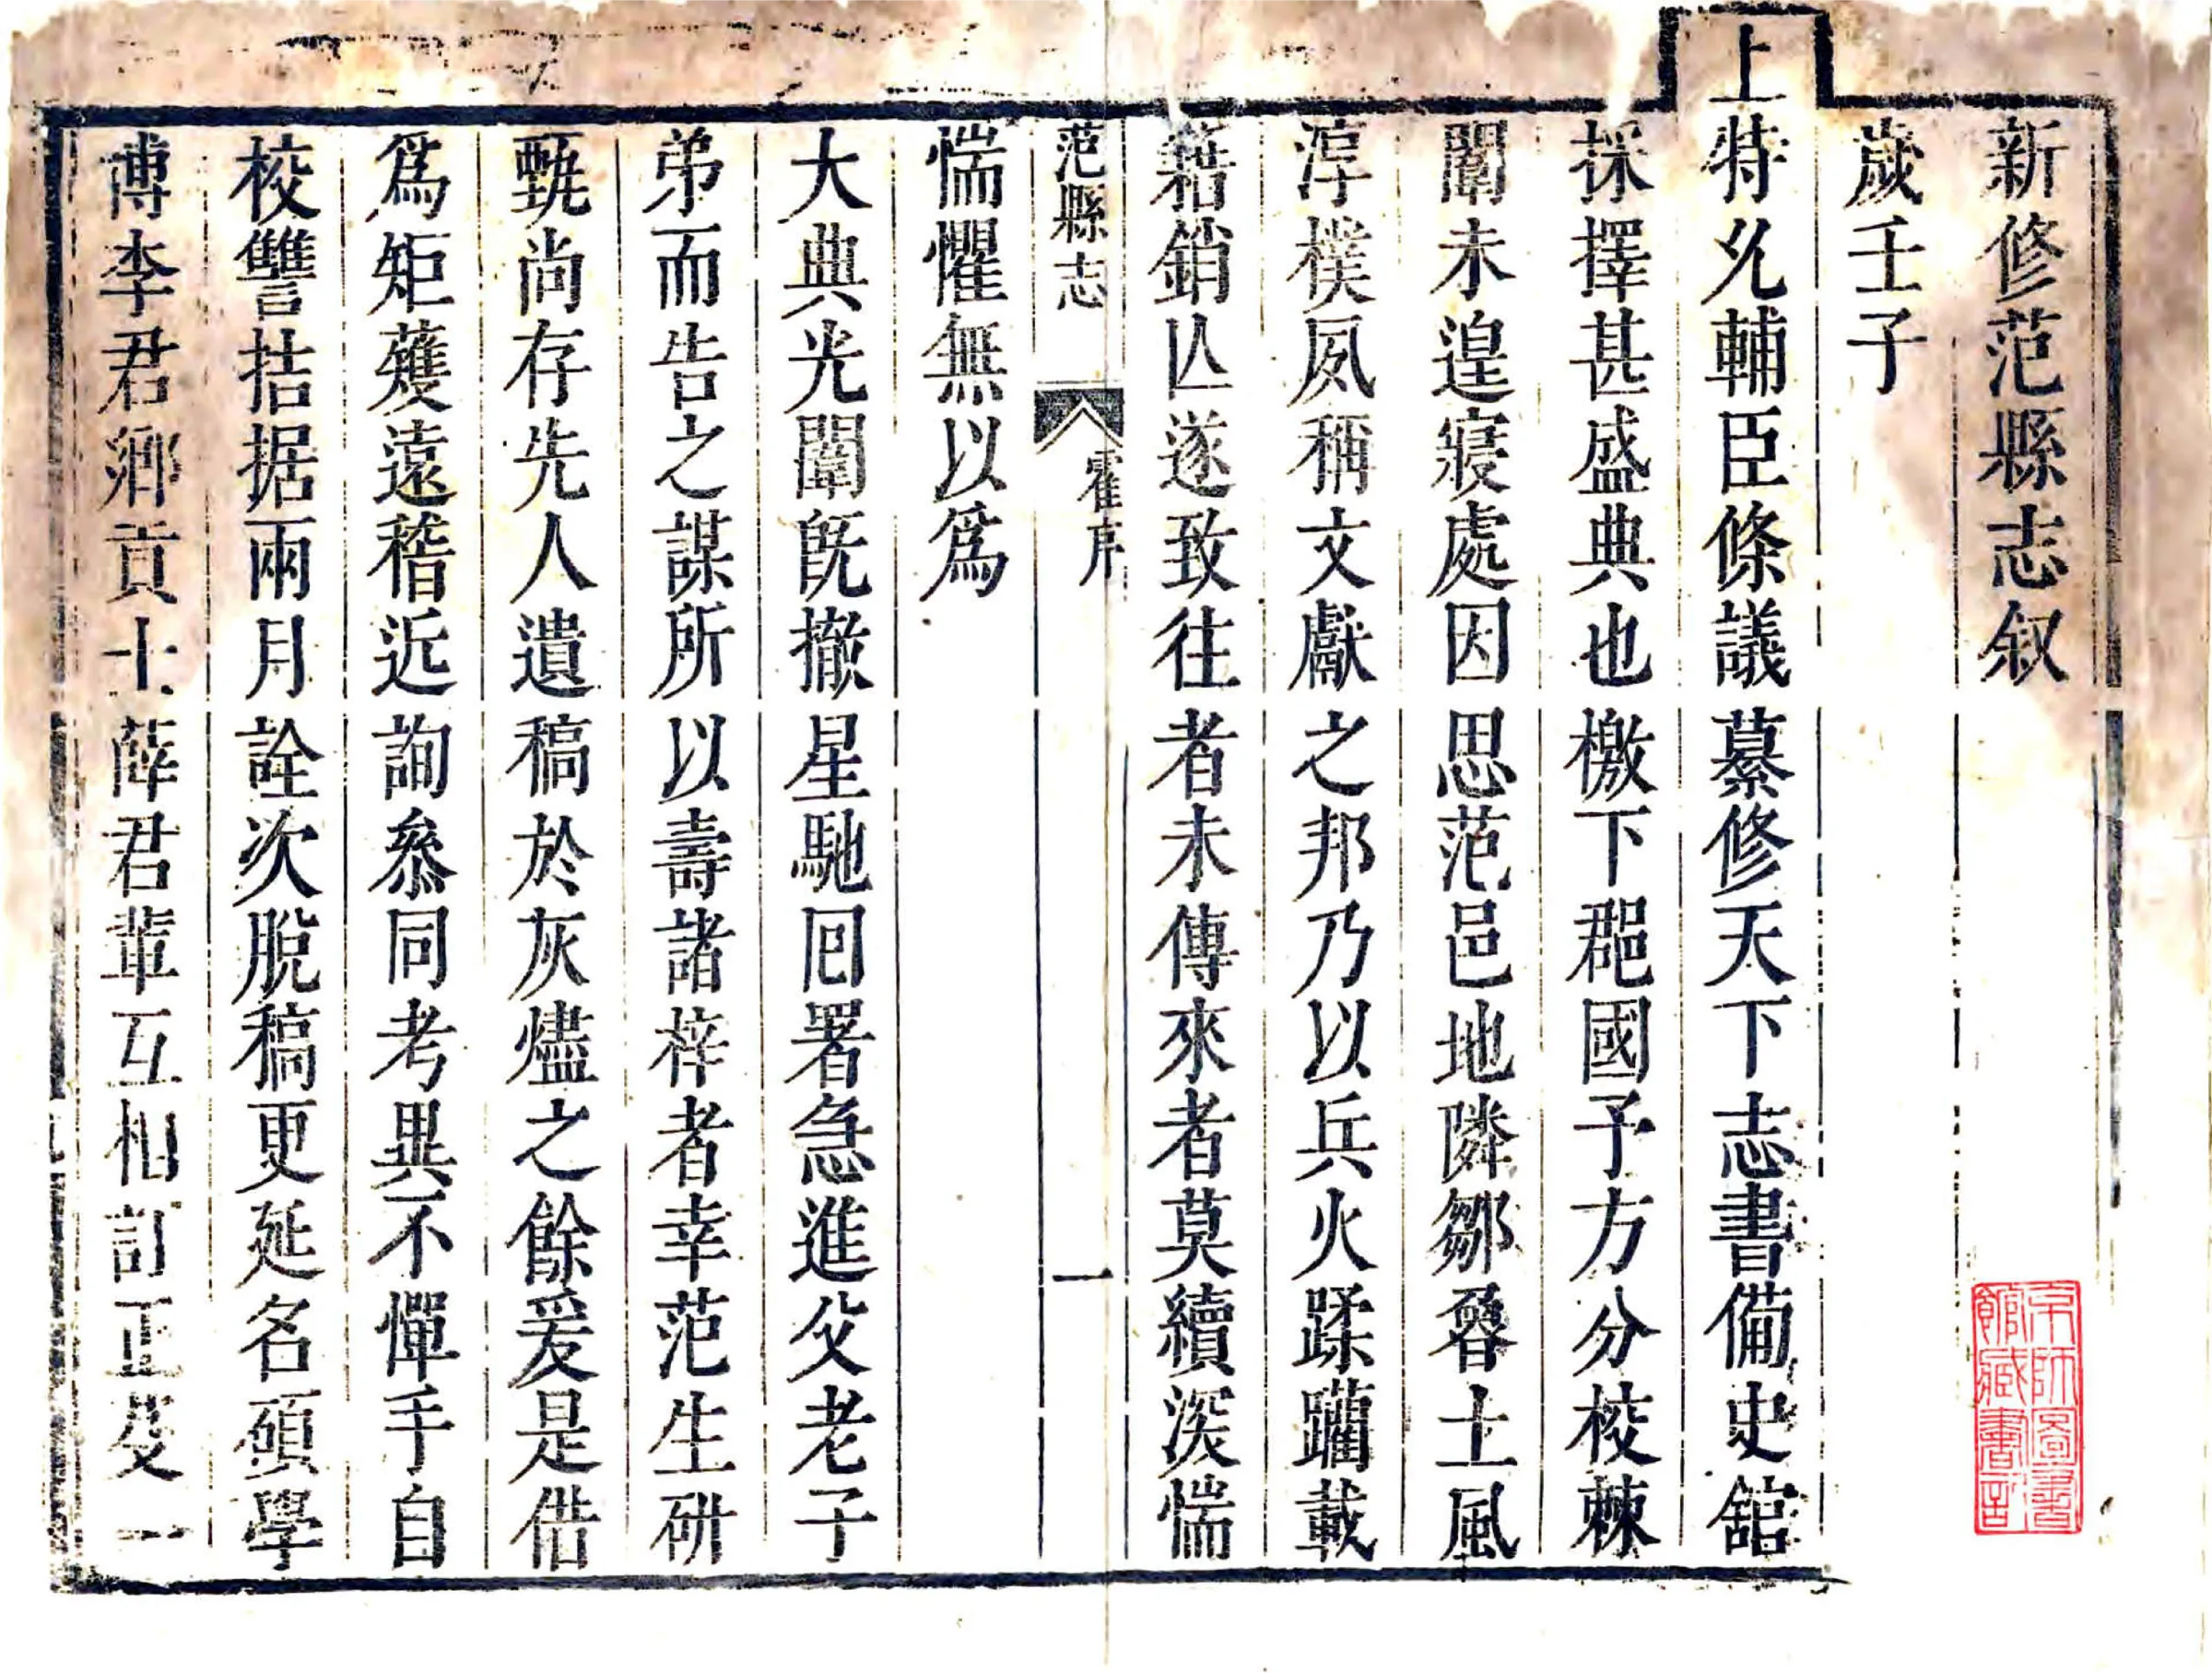 新修范縣志叙
歲壬子
上特允輔臣條議纂修天下志書備史舘
採擇甚盛典也檄下郡國予方分校棘
闈未遑寢處因思范邑地隣鄒魯土風
淳樸夙稱文獻之邦乃以兵火蹂躪載
籍銷亾遂致往者未傳來者莫續深惴
范縣志
霍序
一
惴懼無以爲
大典光闈旣撤星馳囘署急進父老子
弟而告之謀所以壽諸梓者幸范生硏
甄尚存先人遺稿於灰燼之餘爰是借
爲矩矱遠稽近詢叅同考異不憚手自
校讐拮据兩月詮次脫稿更延名碩學
博李君鄉貢士薛君輩互相訂正芟一
京師圖書
館藏書記